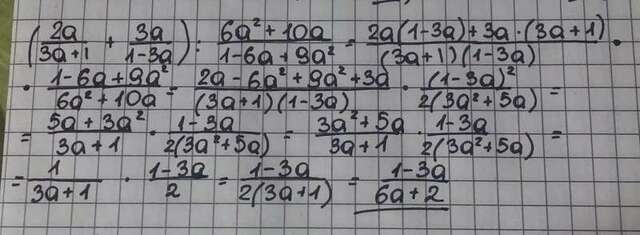 (2a/(3a+1) + 3a/(1-3a)) : (6a²+10a)/(1-6a+9a²) = (2a(1-3a)+3a·(3a+1))/((3a+1)(1-3a)) ·
· (1-6a+9a²)/(6a²+10a) = (2a-6a²+9a²+3a)/((3a+1)(1-3a)) · (1-3a)²/(2(3a²+5a)) =
= (5a+3a²)/(3a+1) · (1-3a)/(2(3a²+5a)) = (3a²+5a)/(3a+1) · (1-3a)/(2(3a²+5a)) =
= 1/(3a+1) · (1-3a)/2 = (1-3a)/(2(3a+1)) = (1-3a)/(6a+2)